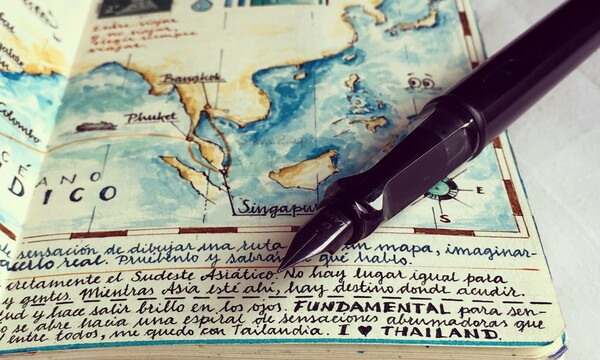 Entre viajar
y no viajar,
elegir siempre
viajar.
Bangkok
Phuket
Colombo
OCÉANO
ÍNDICO
Singapur
E
S
sensación de dibujar una ruta mapa, imaginar-
acerlo real. Pruébenlo y sabrán qué hablo.
cretamente el Sudeste Asiático. No hay lugar igual para
y gentes. Mientras Asia esté ahí, hay destino donde acudir.
ud y hace salir brillo en los ojos. FUNDAMENTAL para sen-
o se abre hacia una espiral de sensaciones abrumadoras que
entre todos, me quedo con Tailandia. I ♥ THAILAND.